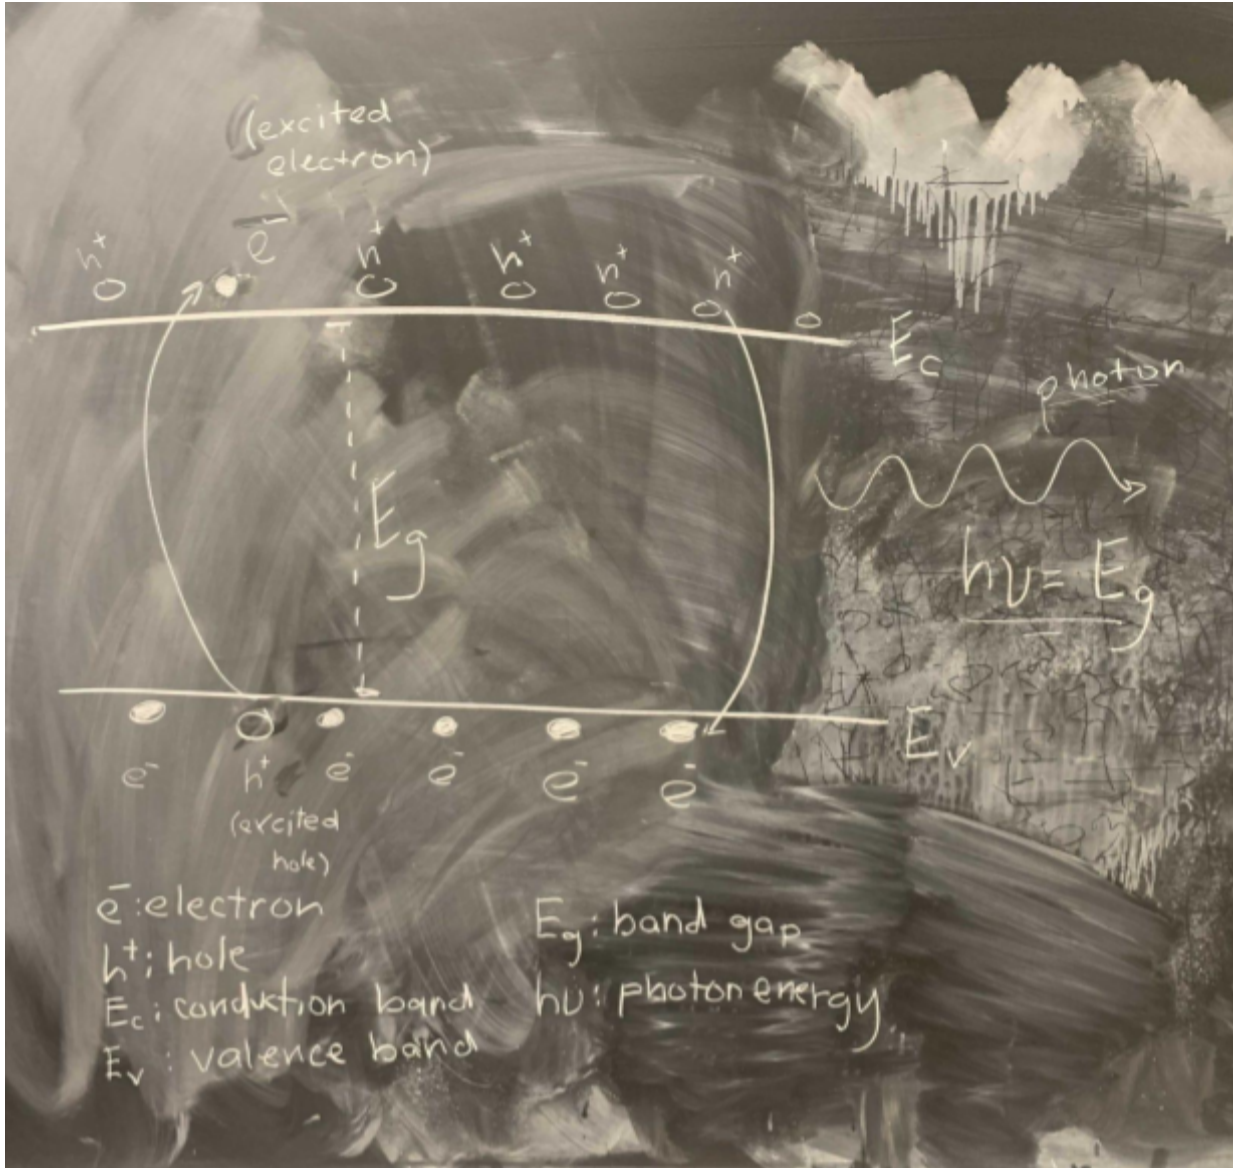 (excited
electron)
e⁻
h⁺
h⁺
h⁺
h⁺
h⁺
E_c
photon
E_g
hν = E_g
E_v
e⁻
h⁺
e⁻
e⁻
e⁻
e⁻
(excited
hole)
e⁻: electron
h⁺: hole
E_c: conduction band
E_v: valence band
E_g: band gap
hν: photon energy